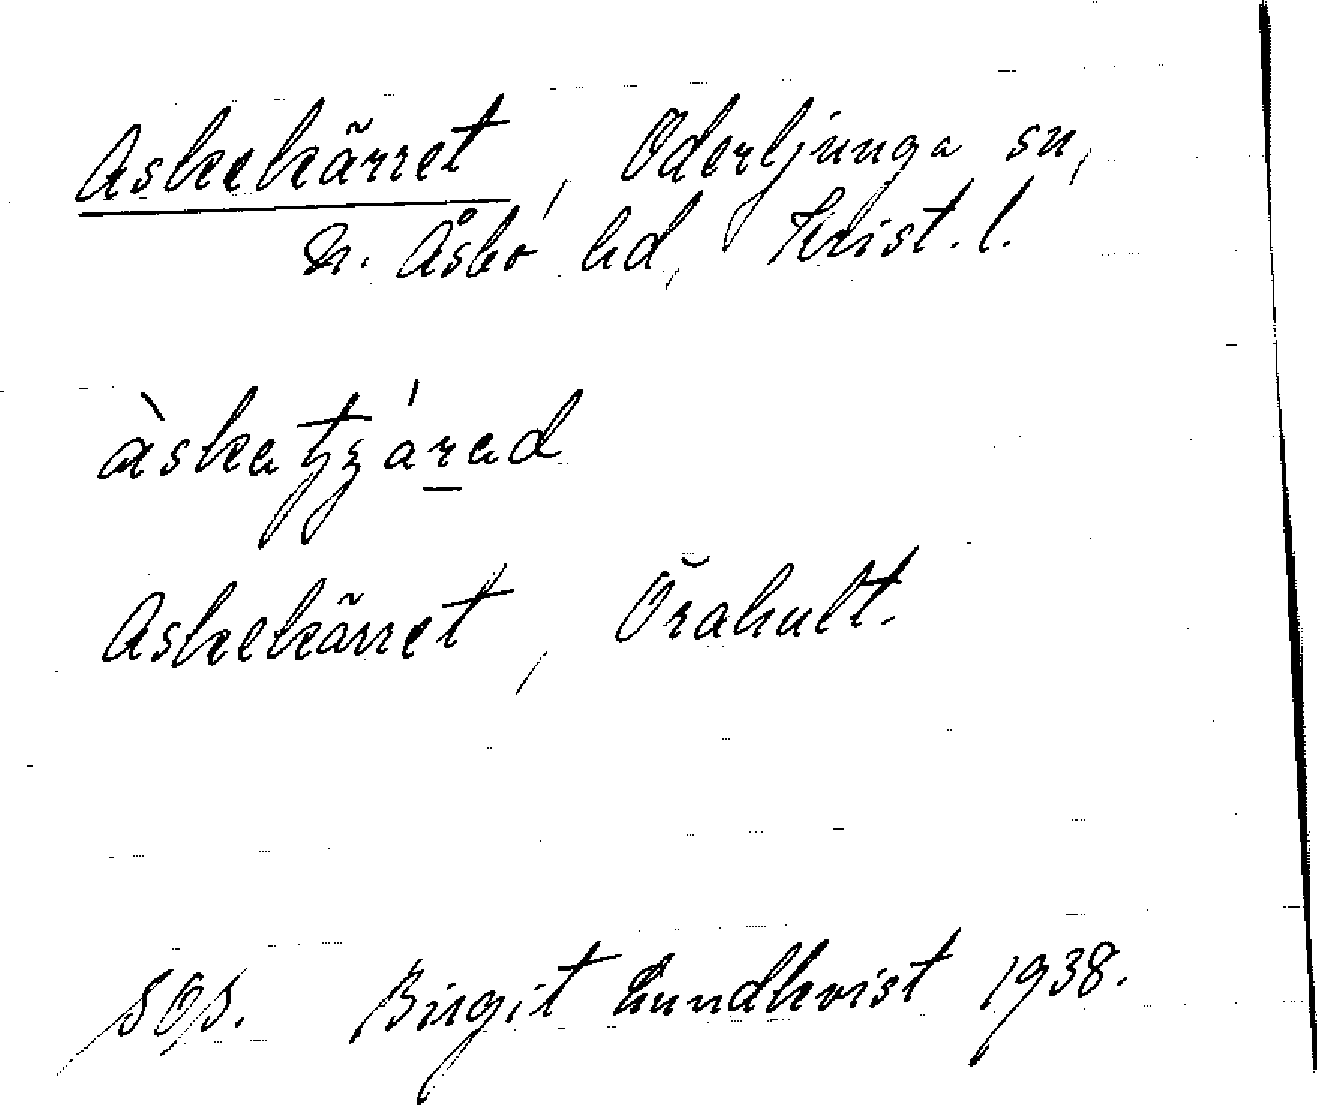 Askekärret, Oderljunga sn,
N. Åsbo hd, Krist. l.
àskatʒárad
Askekärret, Örahult.
SOS. Birgit Lundkvist 1938.